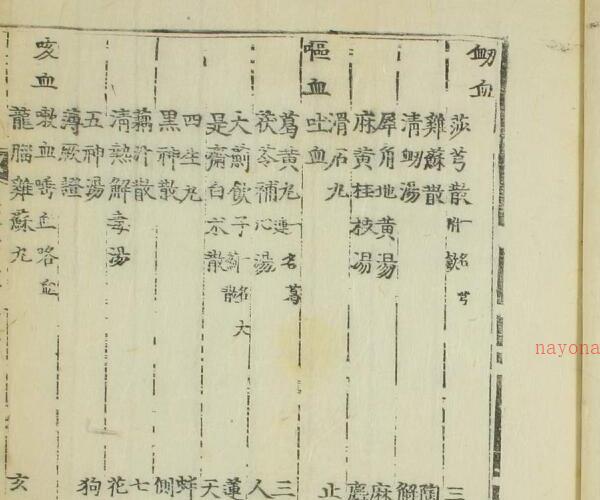 衂血
莎芎散 一名芎附飮 三
雞蘇散 陶
清衂湯 解
犀角地黃湯 麻
麻黃桂枝湯 麝
滑石丸 止
嘔血 吐血
葛黃丸 一名葛連 三
茯苓補心湯 人
大薊飮子 一名大薊散 蓮
是齋白朮散 天
四生丸 蚌
黑神散 側
藕汁散 七
清熱解毒湯 花
五神湯 狗
薄厥證
咳血 嗽血唾血咯血
龍腦雞蘇丸 亥
nayona